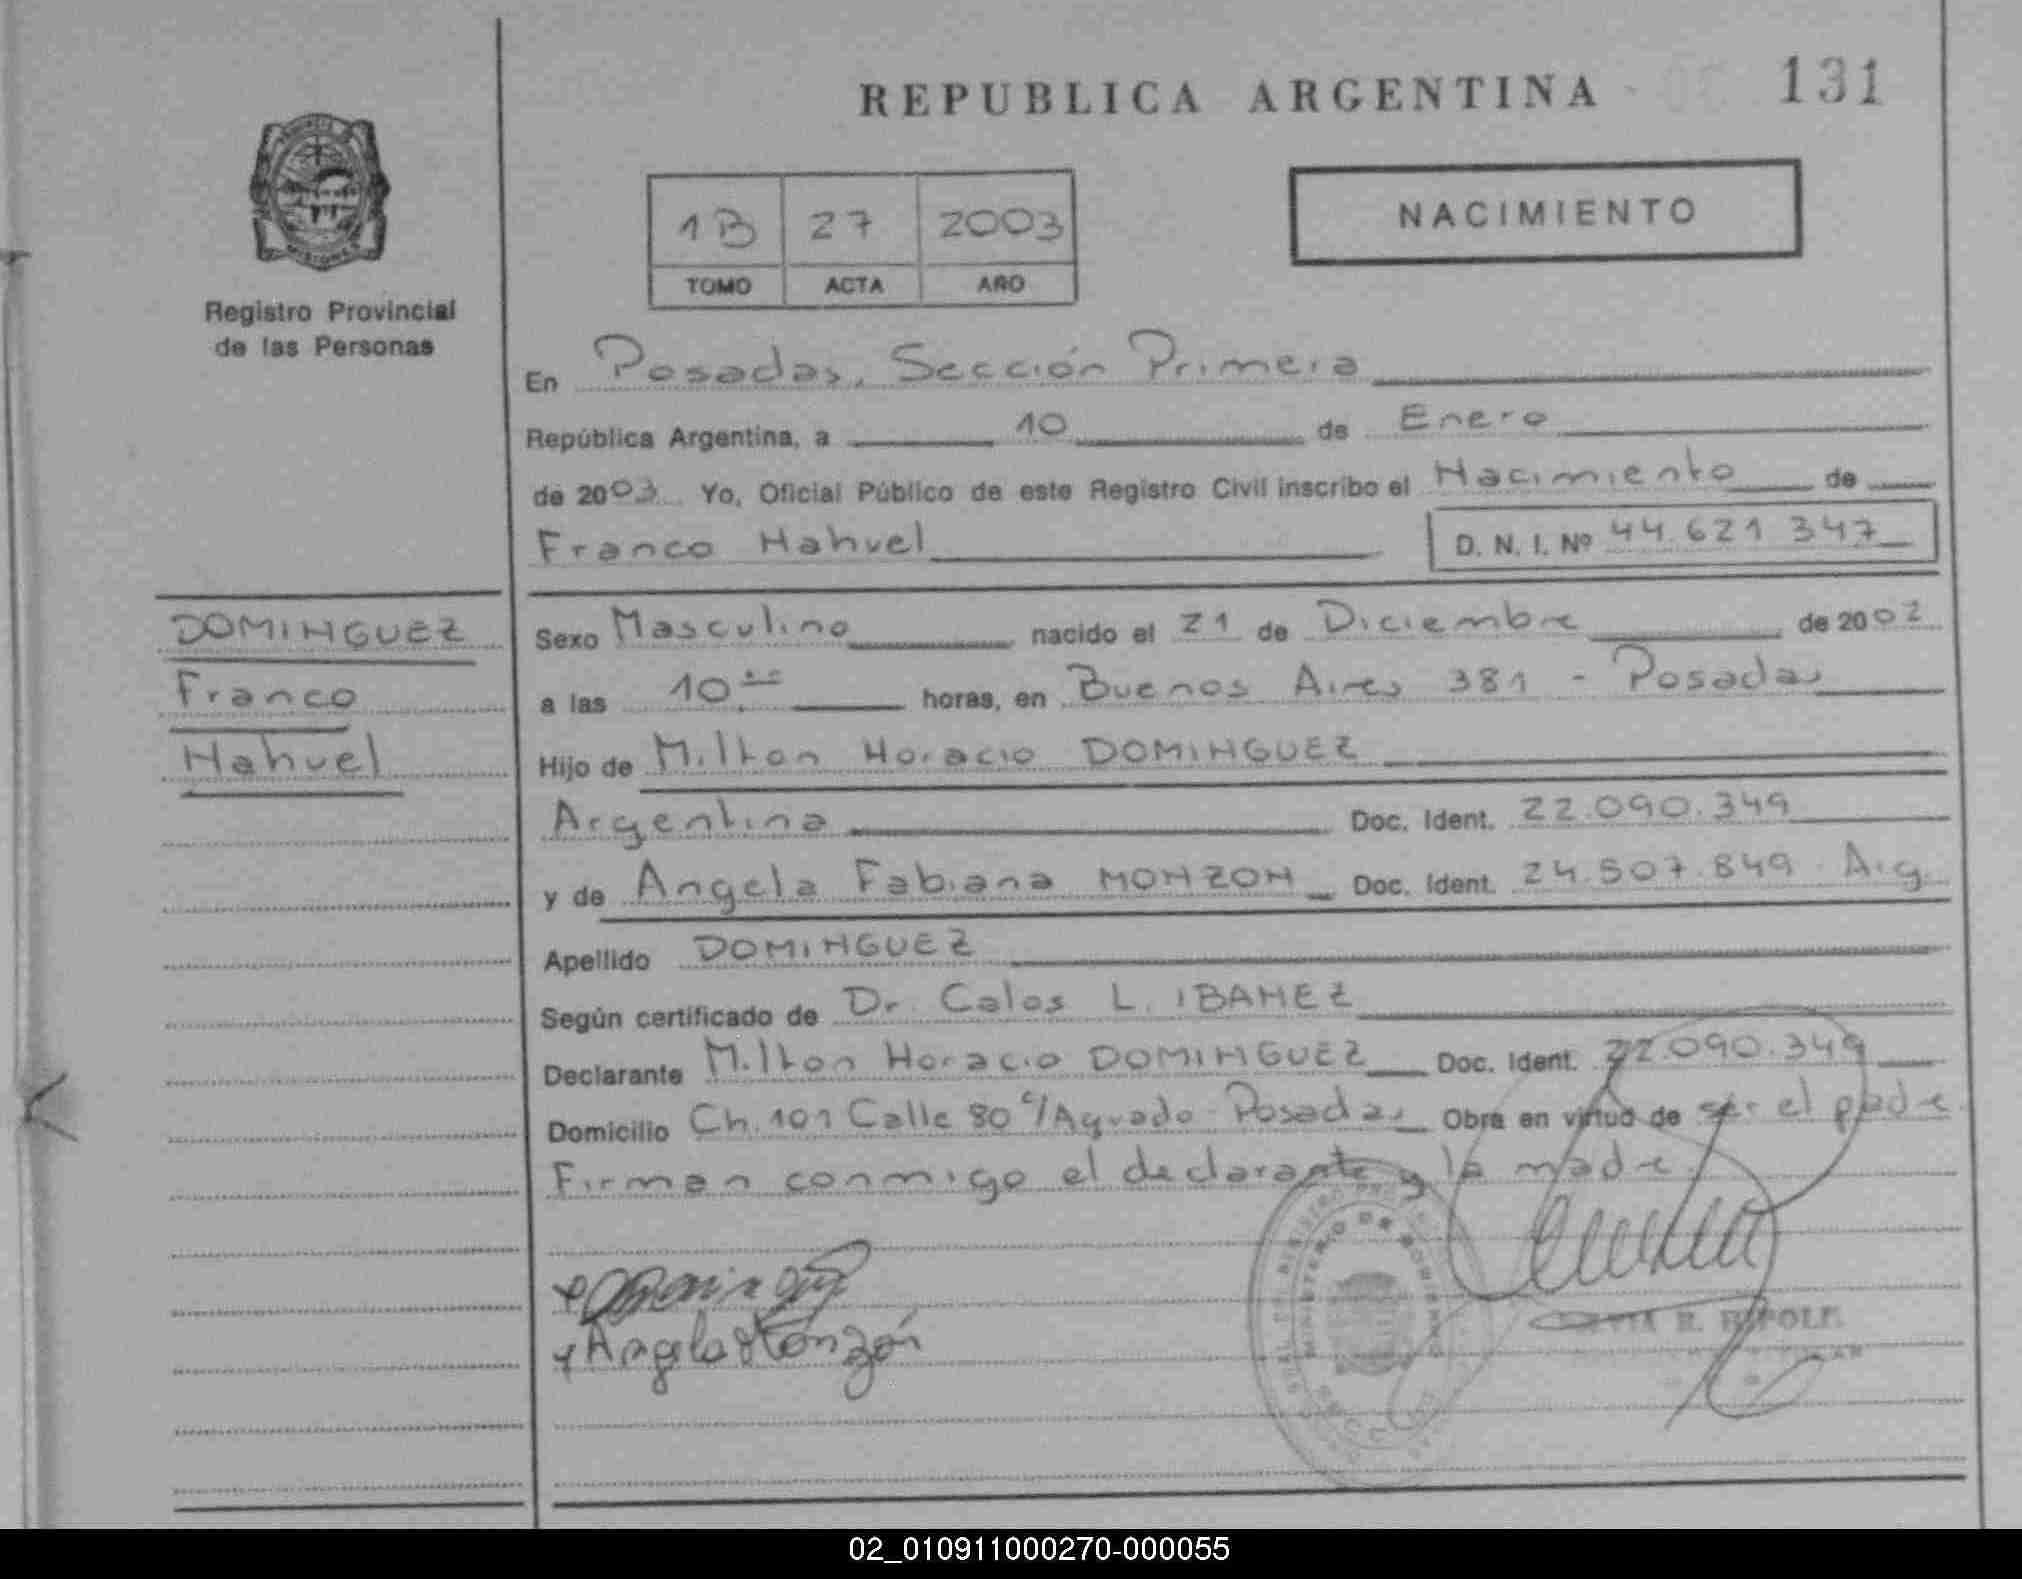 REPUBLICA ARGENTINA 131
Registro Provincial
de las Personas
1B 27 2003
TOMO ACTA AÑO
NACIMIENTO
En Posadas, Sección Primera
República Argentina, a 10 de Enero
de 2003 Yo, Oficial Público de este Registro Civil inscribo el Nacimiento de
Franco Nahuel D. N. I. Nº 44.621 347
DOMINGUEZ
Franco
Nahuel
Sexo Masculino nacido el 21 de Diciembre de 2002
a las 10 horas, en Buenos Aires 381 - Posadas
Hijo de Milton Horacio DOMINGUEZ
Argentina Doc. Ident. 22.090.349
y de Angela Fabiana MONZON Doc. Ident. 24.507.849 Arg.
Apellido DOMINGUEZ
Según certificado de Dr. Calos L. IBAÑEZ
Declarante Milton Horacio DOMINGUEZ Doc. Ident. 22.090.349
Domicilio Ch. 101 Calle 80 c/Aguado Posadas Obra en virtud de ser el padre
Firman conmigo el declarante y la madre.
Angela Monzón
MINISTERIO DE GOBIERNO
02_010911000270-000055